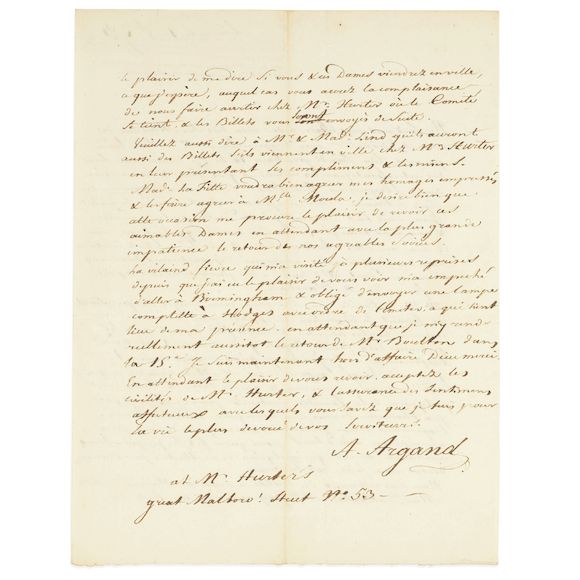 le plaisir de me dire si vous & ces Dames viendrez en ville,
ce que j'espère, auquel cas vous aurez la complaisance
de nous faire avertir chez Mr. Hurter où le Comité
se tient & les Billets vous seront envoyés de suite.
Veuillez aussi dire à Mr. & Mad. Lind qu'ils auront
aussi des Billets s'ils viennent en ville chez Mr. Hurter
en leur présentant ses complimens & les miens.
Mad. La Fitte voudra bien agréer mes homages empressés
& les faire agréer à Mlle Moula. je desire bien que
cette occasion me procure le plaisir de revoir ces
aimables Dames en attendant avec la plus grande
impatience le retour de nos agréables soirées.
La vilaine fievre qui m'a visité à plusieurs reprises
depuis que j'ai eu le plaisir de vous voir m'a empeché
d'aller à Birmingham & obligé d'envoyer une lampe
complette à Hodges avec ordre de l'imiter, ce qui tient
lieu de ma présence en attendant que je m'y rende
reellement aussitot le retour de Mr. Boulton dans
la 15e. Je suis maintenant hors d'affaire Dieu merci.
En attendant le plaisir de vous revoir acceptez les
civilités de Mr. Hurter, & l'assurance des sentimens
affectueux avec lesquels vous savez que je suis pour
la vie le plus devoué de vos serviteurs.
A. Argand
at Mr. Hurter's
great Malboro' Street No. 53